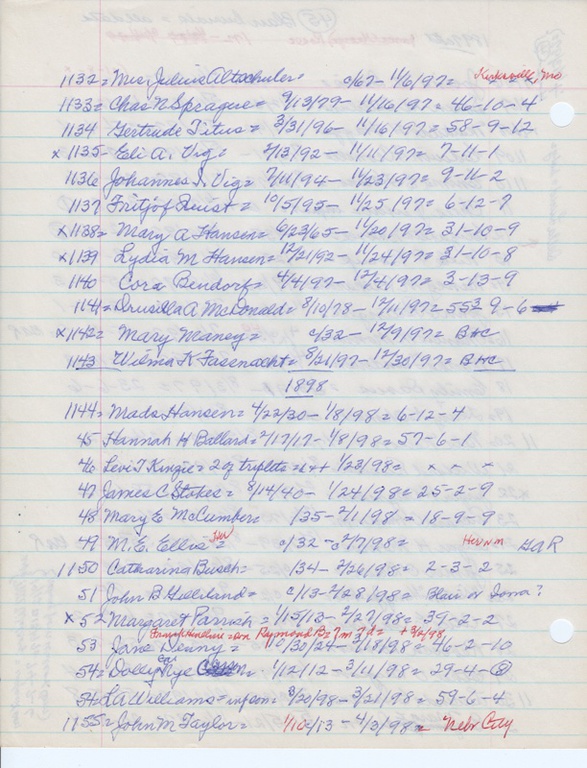 1132 = Mrs. Julius Altschuler = c/67 - 11/6/97 = Kirksville, Mo
1133 = Chas N Sprague = 9/13/79 - 11/16/97 = 46-10-4
1134 Gertrude Titus = 3/31/96 - 11/16/97 = 58-9-12
x 1135 - Eli A. Vig = 2/13/92 - 11/11/97 = 7-11-1
1136 Johannes I. Vig = 7/11/94 - 11/23/97 = 9-11-2
1137 Fritjof Quist = 10/5/95 - 11/25/97 = 6-12-7
x 1138 = Mary A Hansen = 6/23/65 - 11/20/97 = 31-10-9
x 1139 Lydia M Hansen = 12/21/92 - 11/24/97 = 31-10-8
1140 Cora Bendorf = 4/4/97 - 12/4/97 = 3-13-9
1141 = Drusilla A McDonald = 8/10/78 - 12/11/97 = 553 9-6
x 1142 = Mary Maney = c/32 - 12/9/97 = BHC
1143 Wilma K Fasenacht = 8/21/97 - 12/30/97 = BHC
1898
1144 = Mads Hansen = 4/22/30 - 1/8/98 = 6-12-4
45 Hannah H Ballard = 2/17/17 - 1/8/98 = 57-6-1
46 Levi T Kinzie = 2 of triplets = 1/23/98 = x x x
47 James C Stokes = 8/14/40 - 1/24/98 = 25-2-9
48 Mary E McCumber = /35 - 2/1/98 = 18-9-9
49 M. E. Ellis = c/32 - 2/7/98 = GAR
1150 Catharina Busch = /34 - 2/26/98 = 2-3-2
51 John B Gilleland = c/13 - 2/28/98 = Blair or Iowa?
x 52 Margaret Parrish = 1/15/13 - 2/27/98 = 39-2-2
Raymond B = 7m 3d = + 3/2/98
53 Jane Denny = 10/30/24 - 2/18/98 = 46-2-10
54 = Dolly Nye = 1/12/12 - 3/11/98 = 29-4-8
54 L A Williams = infson = 3/20/98 - 3/21/98 = 59-6-4
1155 = John M Taylor = 1/10/13 - 4/3/98 = Nebr City